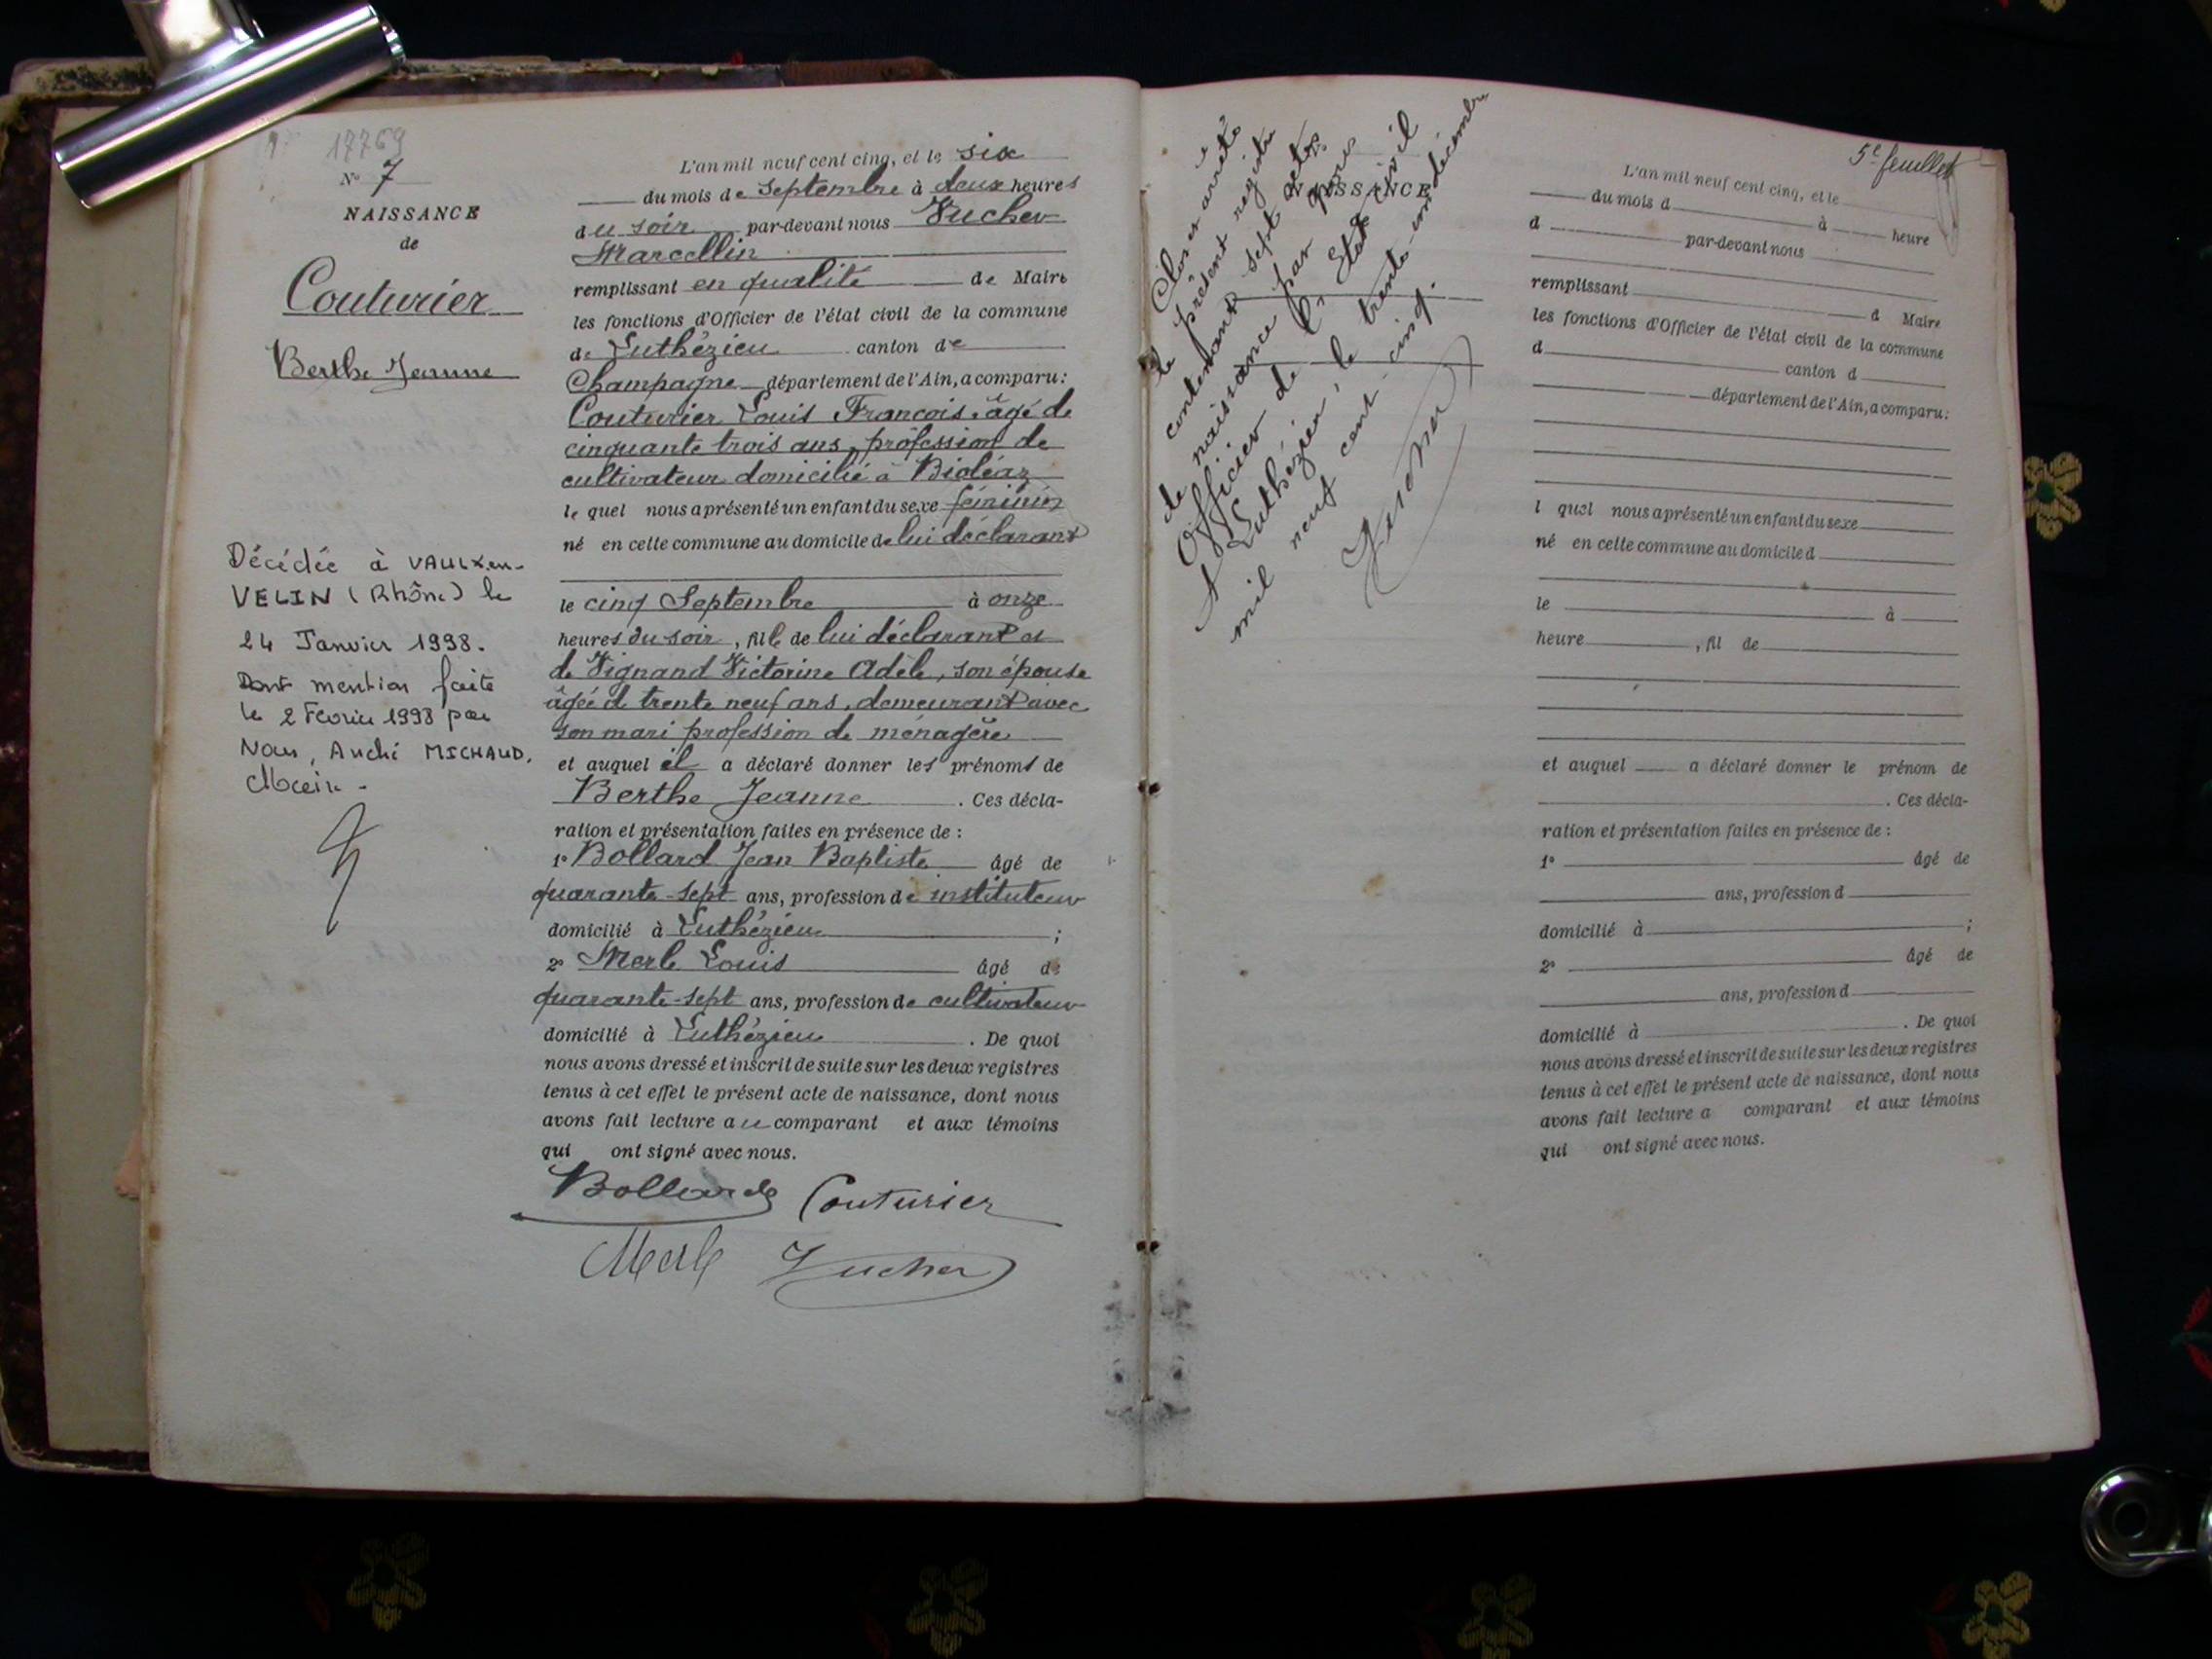 17769
N° 7
NAISSANCE
de
Couturier
Berthe Jeanne
Décédée à VAULX-en-
VELIN (Rhône) le
24 Janvier 1998.
Dont mention faite
le 2 Février 1998 par
Nous, André MICHAUD,
Maire -
L'an mil neuf cent cinq, et le six
du mois de Septembre à deux heures
du soir par-devant nous Vucher
Marcellin
remplissant en qualité de Maire
les fonctions d'Officier de l'état civil de la commune
de Luthézieu canton de
Champagne département de l'Ain, a comparu:
Couturier Louis François âgé de
cinquante trois ans, profession de
cultivateur domicilié à Bioléaz
le quel nous a présenté un enfant du sexe féminin
né en cette commune au domicile de lui déclarant
le cinq Septembre à onze
heures du soir, fille de lui déclarant et
de Vignand Victorine Adèle, son épouse
âgée de trente neuf ans, demeurant avec
son mari profession de ménagère
et auquel il a déclaré donner les prénoms de
Berthe Jeanne. Ces décla-
ration et présentation faites en présence de :
1° Bollard Jean Baptiste âgé de
quarante-sept ans, profession de instituteur
domicilié à Luthézieu ;
2° Merle Louis âgé de
quarante-sept ans, profession de cultivateur
domicilié à Luthézieu. De quoi
nous avons dressé et inscrit de suite sur les deux registres
tenus à cet effet le présent acte de naissance, dont nous
avons fait lecture au comparant et aux témoins
qui ont signé avec nous.
Bollard Couturier
Merle Vucher
Clos et arrêté
le présent registre
contenant sept actes
de naissance par nous
Officier de l'Etat civil
A Luthézieu, le trente-un décembre
mil neuf cent cinq.
Vucher
NAISSANCE
5e feuillet
L'an mil neuf cent cinq, et le
du mois d à heure
d par-devant nous
remplissant d Maire
les fonctions d'Officier de l'état civil de la commune
d canton d
département de l'Ain, a comparu:
l quel nous a présenté un enfant du sexe
né en cette commune au domicile d
le à
heure , fil de
et auquel a déclaré donner le prénom de
. Ces décla-
ration et présentation faites en présence de :
1° âgé de
ans, profession d
domicilié à ;
2° âgé de
ans, profession d
domicilié à . De quoi
nous avons dressé et inscrit de suite sur les deux registres
tenus à cet effet le présent acte de naissance, dont nous
avons fait lecture a comparant et aux témoins
qui ont signé avec nous.